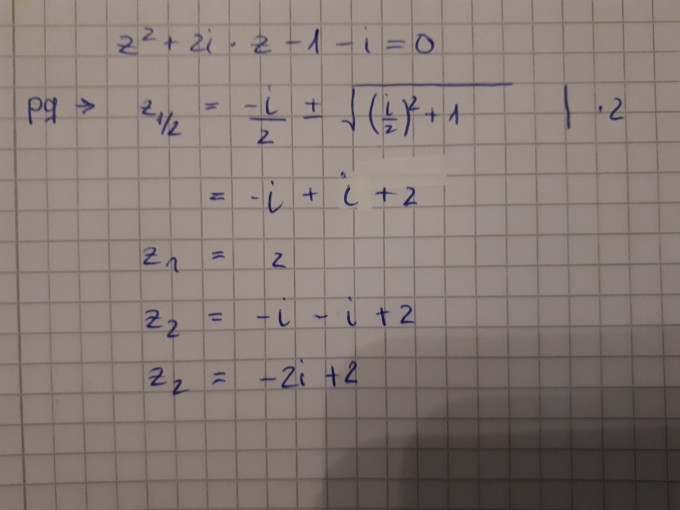 z² + 2i · z - 1 - i = 0
pq → z₁/₂ = -i/2 ± √((i/2)² + 1) | · 2
= -i + i + 2
z₁ = 2
z₂ = -i - i + 2
z₂ = -2i + 2